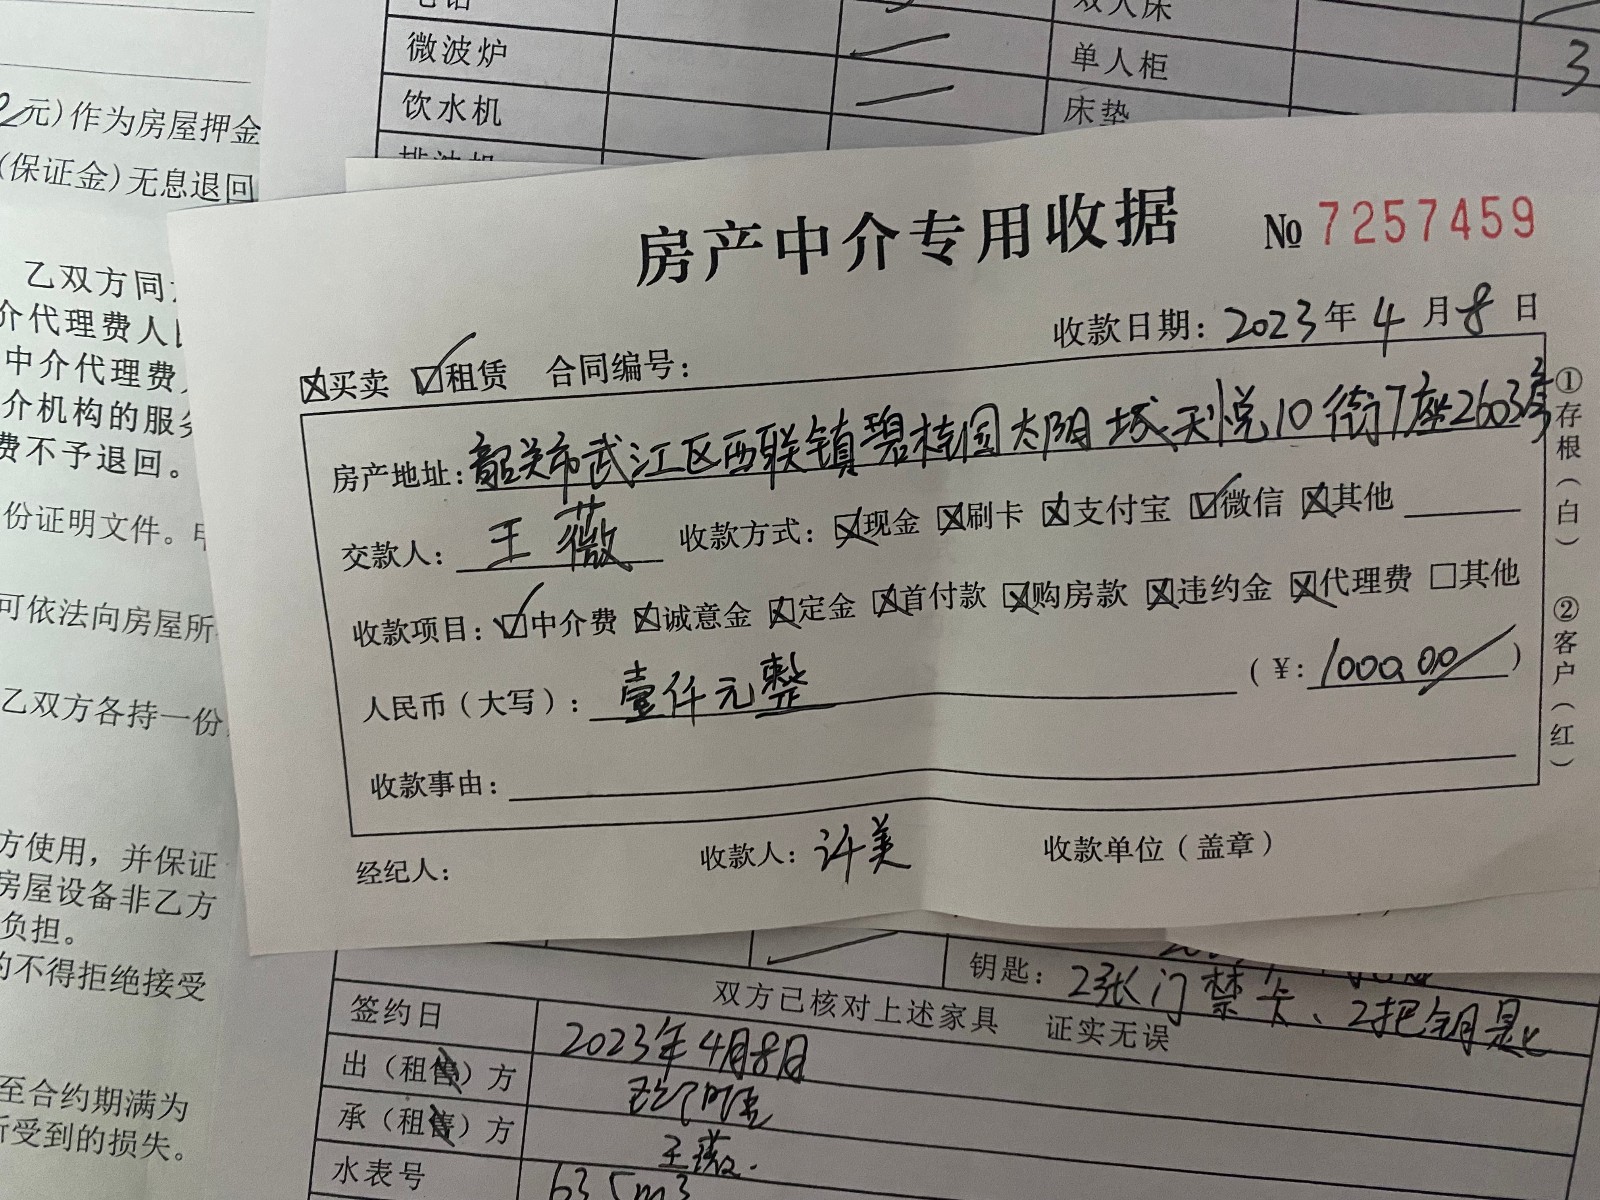 元)作为房屋押金
(保证金)无息退回
乙双方同
介代理费人
中介代理费
介机构的服
费不予退回。
份证明文件。
可依法向房屋所
乙双方各持一份
方使用，并保证
房屋设备非乙方
负担。
不得拒绝接受
至合约期满为
所受到的损失。
双人床
微波炉 单人柜 3
饮水机 床垫
房产中介专用收据 № 7257459
收款日期：2023年4月8日
买卖 租赁 合同编号：
房产地址：韶关市武江区西联镇碧桂园太阳城天悦10街7座2603号
交款人：王薇 收款方式：现金 刷卡 支付宝 微信 其他
收款项目：中介费 诚意金 定金 首付款 购房款 违约金 代理费 其他
人民币（大写）：壹仟元整 (¥：1000.00)
收款事由：
经纪人： 收款人：许美 收款单位（盖章）
①存根（白） ②客户（红）
钥匙：2张门禁卡、2把钥匙
双方已核对上述家具 证实无误
签约日 2023年4月8日
出（租售）方
承（租售）方 王薇.
水表号